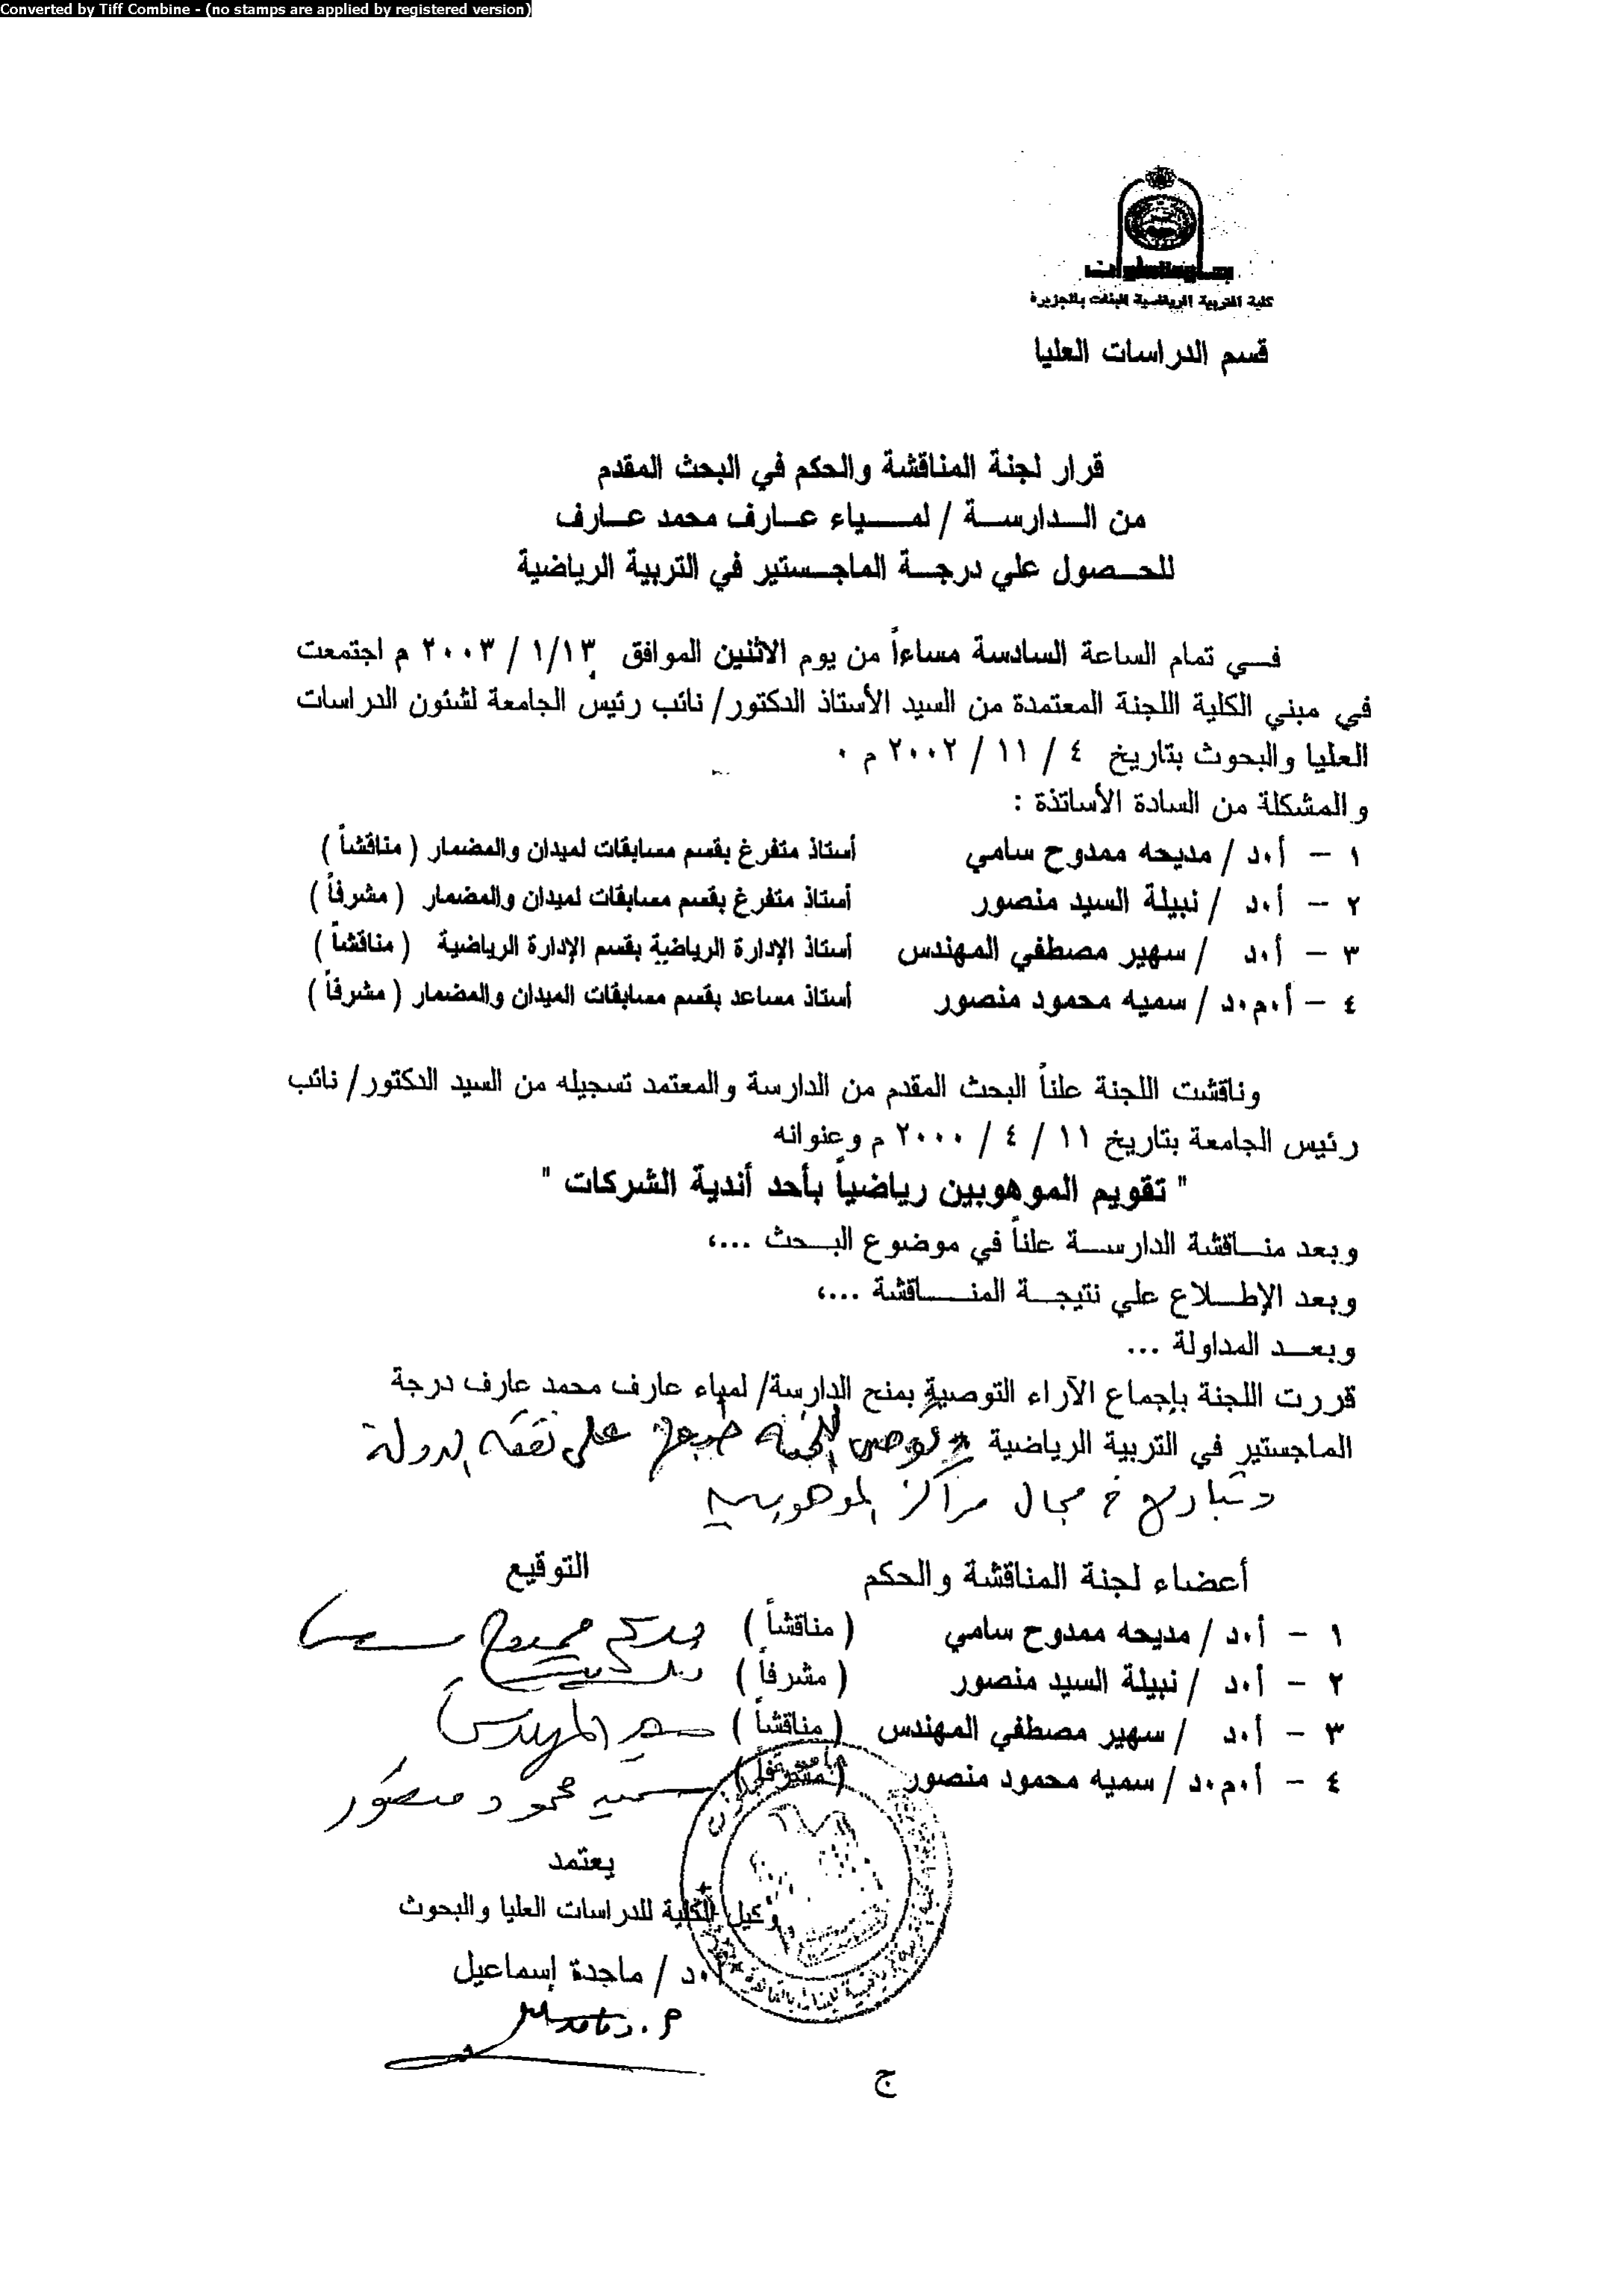 Converted by Tiff Combine - (no stamps are applied by registered version)
كلية التربية الرياضية للبنات بالجزيرة
قسم الدراسات العليا
قرار لجنة المناقشة والحكم في البحث المقدم
من الدارسة / لمياء عارف محمد عارف
للحصول علي درجة الماجستير في التربية الرياضية
في تمام الساعة السادسة مساءاً من يوم الاثنين الموافق ١/١٣ / ٢٠٠٣ م اجتمعت
في مبني الكلية اللجنة المعتمدة من السيد الأستاذ الدكتور/ نائب رئيس الجامعة لشئون الدراسات
العليا والبحوث بتاريخ ٤ / ١١ / ٢٠٠٢ م ٠
والمشكلة من السادة الأساتذة :
١ – أ.د / مديحه ممدوح سامي أستاذ متفرغ بقسم مسابقات لميدان والمضمار ( مناقشاً )
٢ – أ.د / نبيلة السيد منصور أستاذ متفرغ بقسم مسابقات لميدان والمضمار ( مشرفاً )
٣ – أ.د / سهير مصطفي المهندس أستاذ الإدارة الرياضية بقسم الإدارة الرياضية ( مناقشاً )
٤ – أ.م.د / سميه محمود منصور أستاذ مساعد بقسم مسابقات الميدان والمضمار ( مشرفاً )
وناقشت اللجنة علناً البحث المقدم من الدارسة والمعتمد تسجيله من السيد الدكتور/ نائب
رئيس الجامعة بتاريخ ١١ / ٤ / ٢٠٠٠ م وعنوانه
" تقويم الموهوبين رياضياً بأحد أندية الشركات "
وبعد مناقشة الدارسة علناً في موضوع البحث ...،
وبعد الإطلاع علي نتيجة المناقشة ...،
وبعد المداولة ...
قررت اللجنة بإجماع الآراء التوصية بمنح الدارسة/ لمياء عارف محمد عارف درجة
الماجستير في التربية الرياضية وتوصى اللجنة طبعها على نفقة الدولة
وتبادلها في مجال مراكز الموهوبين
أعضاء لجنة المناقشة والحكم التوقيع
١ – أ.د / مديحه ممدوح سامي ( مناقشاً ) مديحه ممدوح سامي
٢ – أ.د / نبيلة السيد منصور ( مشرفاً )
٣ – أ.د / سهير مصطفي المهندس ( مناقشاً ) سهير المهندس
٤ – أ.م.د / سميه محمود منصور ( مشرفاً ) سميه محمود منصور
يعتمد
وكيل الكلية للدراسات العليا والبحوث
أ.د / ماجدة إسماعيل
ج